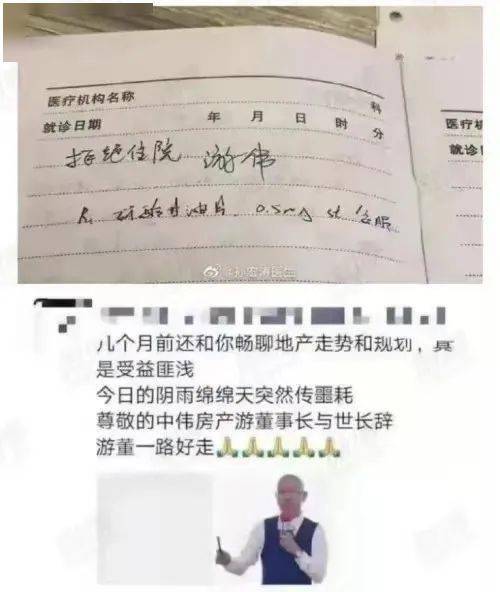 医疗机构名称 科
就诊日期 年 月 日 时 分
医疗机
就诊
拒绝住院 游伟
R: 硝酸甘油片 0.5mg st 含服
@孙宏涛医生
几个月前还和你畅聊地产走势和规划,真
是受益匪浅
今日的阴雨绵绵天突然传噩耗
尊敬的中伟房产游董事长与世长辞
游董一路好走🙏🙏🙏🙏🙏